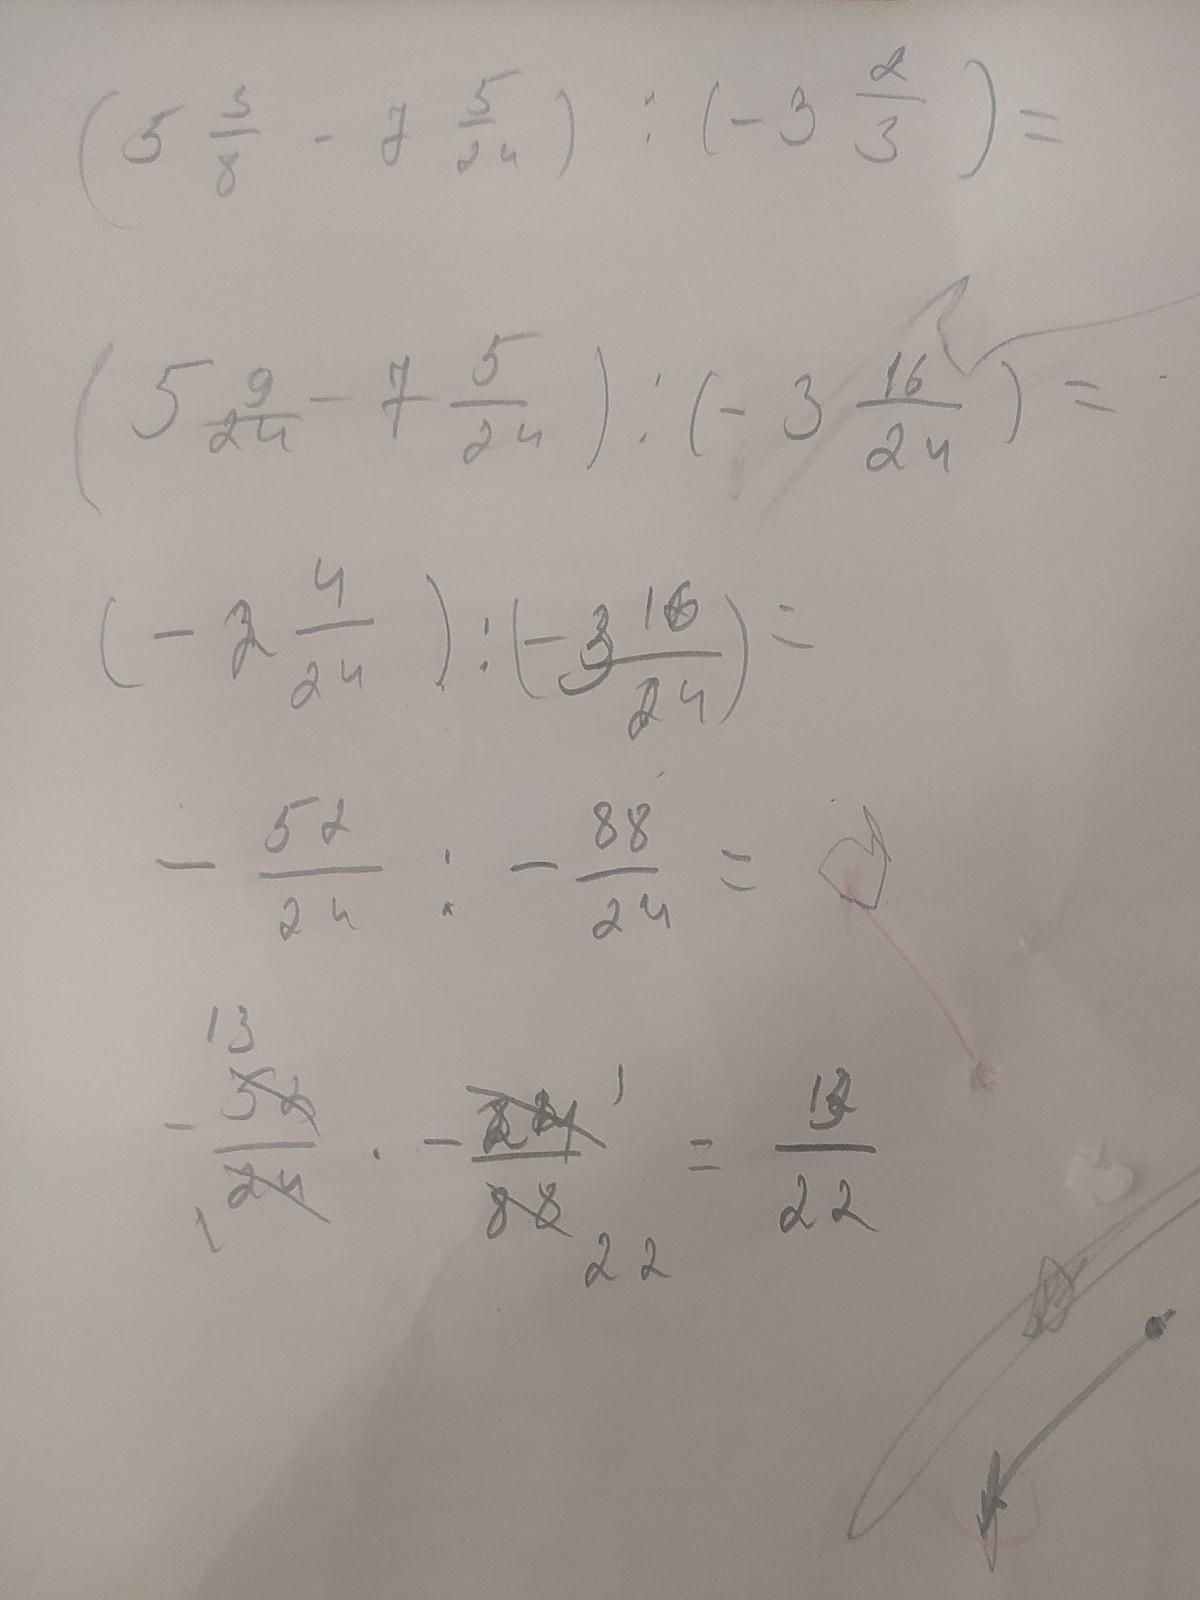 (5 3/8 - 7 5/24) : (-3 2/3) =
(5 9/24 - 7 5/24) : (-3 16/24) =
(-2 4/24) : (-3 16/24) =
- 52/24 : - 88/24 =
13 1
- 52/24 · - 24/88 = 13/22
1 22